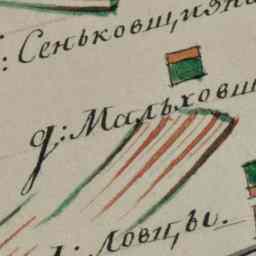 : Сеньковщизна
д: Мальховщ
д: Ловцы.